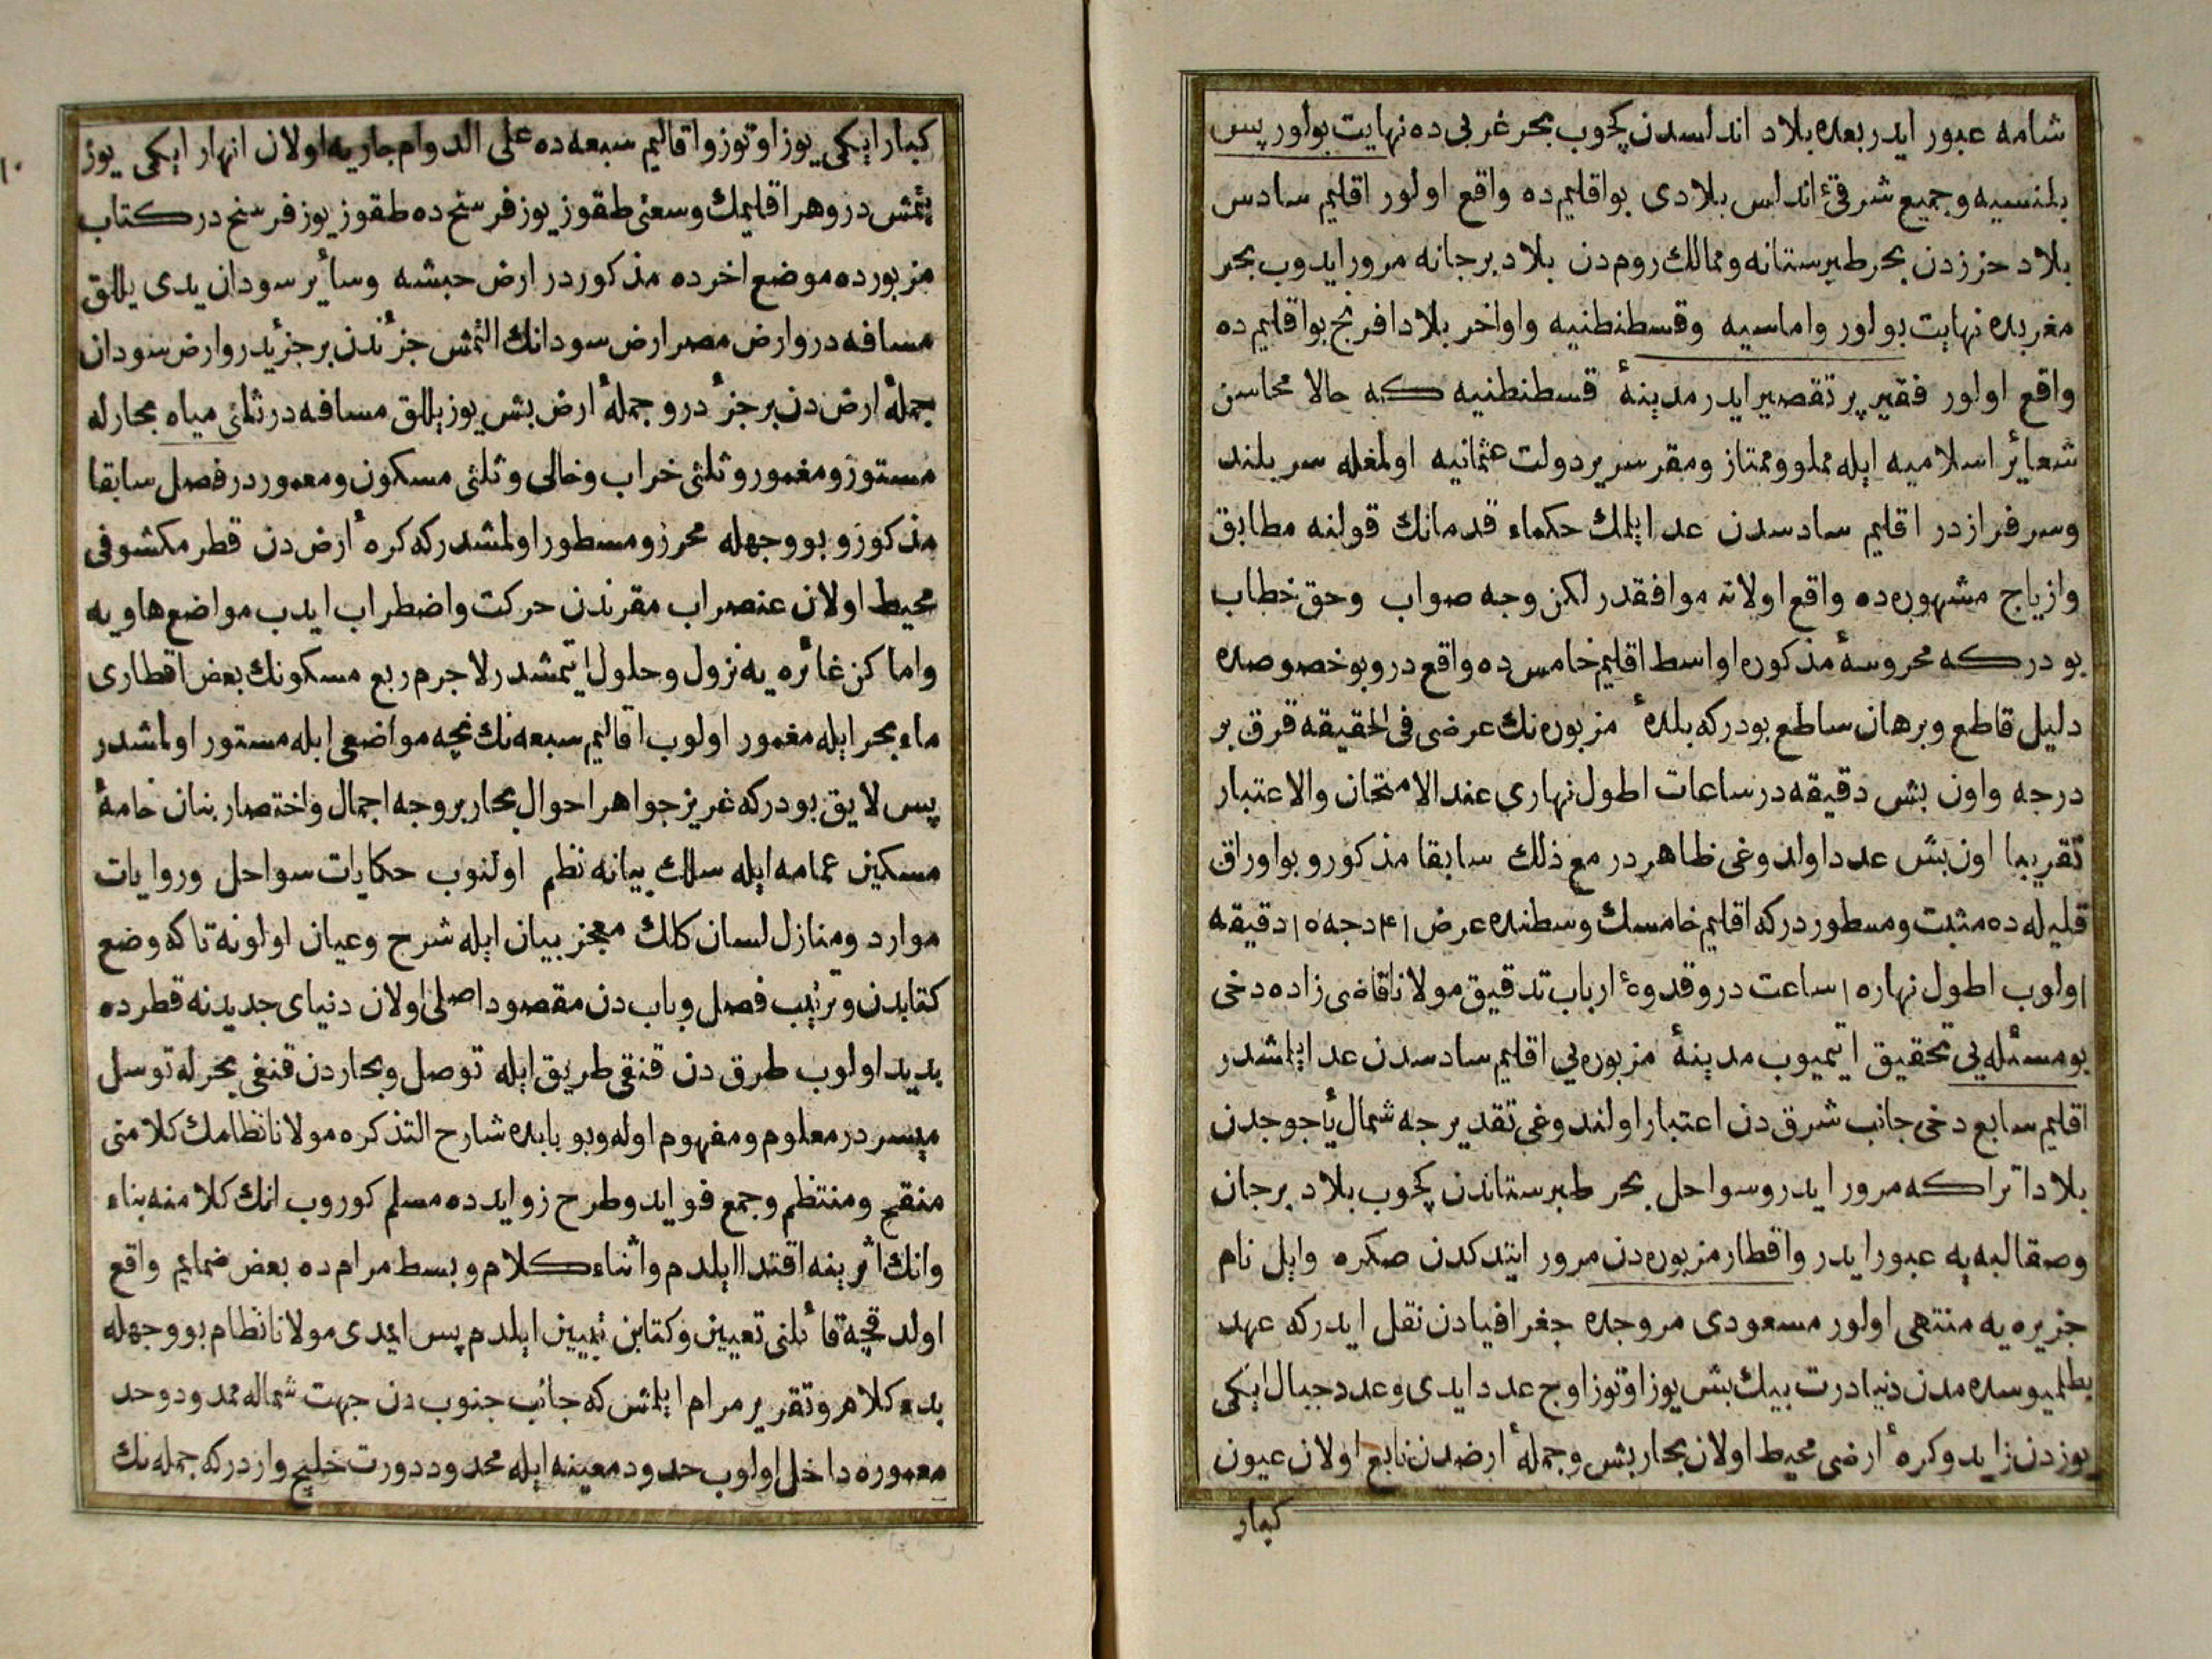 شامه عبور ایدر بعده بلاد اندلسدن کچوب بحر غربی ده نهایت بولور پس
بلنسیه وجمیع شرقئ اندلس بلادی بواقلیم ده واقع اولور اقلیم سادس
بلاد حزردن بحر طبرستانه وممالك روم دن بلاد برجانه مرور ایدوب بحر
مغربده نهایت بولور واماسیه وقسطنطنیه واواخر بلاد افرنج بواقلیم ده
واقع اولور فقیر پر تقصیر ایدر مدینۀ قسطنطنیه که حالا محاسن
شعائر اسلامیه ایله مملو وممتاز ومقر سریر دولت عثمانیه اولمغله سر بلند
وسرفرازدر اقلیم سادسدن عد ایلمك حکماء قدمانك قولنه مطابق
وازیاج مشهوره ده واقع اولانه موافقدر لکن وجه صواب وحق خطاب
بو در که محروسۀ مذکوره اواسط اقلیم خامس ده واقع در وبو خصوصده
دلیل قاطع وبرهان ساطع بودرکه بلدۀ مزبوره نك عرضی فی الحقیقه قرق بر
درجه واون بش دقیقه در ساعات اطول نهاری عند الامتحان والاعتبار
تقریبا اون بش عدد اولدوغی ظاهردر مع ذلك سابقا مذکور وبو اوراق
قلیله ده مثبت ومسطور درکه اقلیم خامسك وسطنده عرض ۴۱ دجه ۱٥ دقیقه
اولوب اطول نهار ۱٥ ساعت در وقدوۀ ارباب تدقیق مولانا قاضی زاده دخی
بومسئله یی تحقیق ایتمیوب مدینۀ مزبوره یی اقلیم سادسدن عد ایلمشدر
اقلیم سابع دخی جانب شرق دن اعتبار اولندوغی تقدیرجه شمال یأجوجدن
بلاد اتراکه مرور ایدر وسواحل بحر طبرستاندن کچوب بلاد برجان
وصقالبه یه عبور ایدر واقطار مزبوره دن مرور ایتدکدن صکره وایل نام
جزیره یه منتهی اولور مسعودی مروجده جغرافیادن نقل ایدرکه عهد
بطلمیوسده مدن دنیا درت بیك بش یوز اوتوز اوج عدد ایدی وعدد جبال ایکی
یوزدن زاید وکرۀ ارضی محیط اولان بحار بش وجملۀ ارضدن نابع اولان عیون
کبار
کبار ایکی یوز اوتوز واقالیم سبعه ده علی الدوام جاریه اولان انهار ایکی یوز
یتمش در وهر اقلیمك وسعتی طقوز یوز فرسنح ده طقوز یوز فرسنح در کتاب
مزبورده موضع اخرده مذکوردر ارض حبشه وسائر سودان یدی یللق
مسافه در وارض مصر ارض سودانك التمش جزئندن بر جزئیدر وارض سودان
جملۀ ارض دن بر جزء در وجملۀ ارض بش یوز یللق مسافه در ثلثی میاه بحارله
مستور ومغمور وثلثی خراب وخالی وثلثی مسکون ومعموردر فصل سابقا
مذکور وبو وجهله محرر ومسطور اولمشدرکه کرۀ ارض دن قطر مکشوفی
محیط اولان عنصر اب مقرندن حرکت واضطراب ایدب مواضع هاویه
واماکن غائره یه نزول وحلول ایتمشدر لاجرم ربع مسکونك بعض اقطاری
ماء بحر ایله مغمور اولوب اقالیم سبعه نك نچه مواضعی ایله مستور اولمشدر
پس لایق بودرکه غریز جواهر احوال بحار بر وجه اجمال واختصار بنان خامۀ
مسکین عمامه ایله سلك بیانه نظم اولنوب حکایات سواحل وروایات
موارد ومنازل لسان کلك معجز بیان ایله شرح وعیان اولونه تاکه وضع
کتابدن وترتیب فصل وباب دن مقصود اصلی اولان دنیای جدیدنه قطرده
بدید اولوب طرق دن قنقی طریق ایله توصل وبحاردن قنغی بحرله توسل
میسردر معلوم ومفهوم اوله وبو بابده شارح التذکره مولانا نظامك کلامنی
منقح ومنتظم وجمع فواید وطرح زوایدده مسلم کوروب انك کلامنه بناء
وانك اثرینه اقتدا ایلدم واثناء کلام وبسط مرامده بعض ضمایم واقع
اولدقچه قائلنی تعیین وکتابن تبیین ایلدم پس ایمدی مولانا نظام بو وجهله
بدء کلام وتقریر مرام ایلمش که جانب جنوب دن جهت شماله ممدود وحد
معموره داخل اولوب حدود معینه ایله محدود درت خلیج واردرکه جمله نك